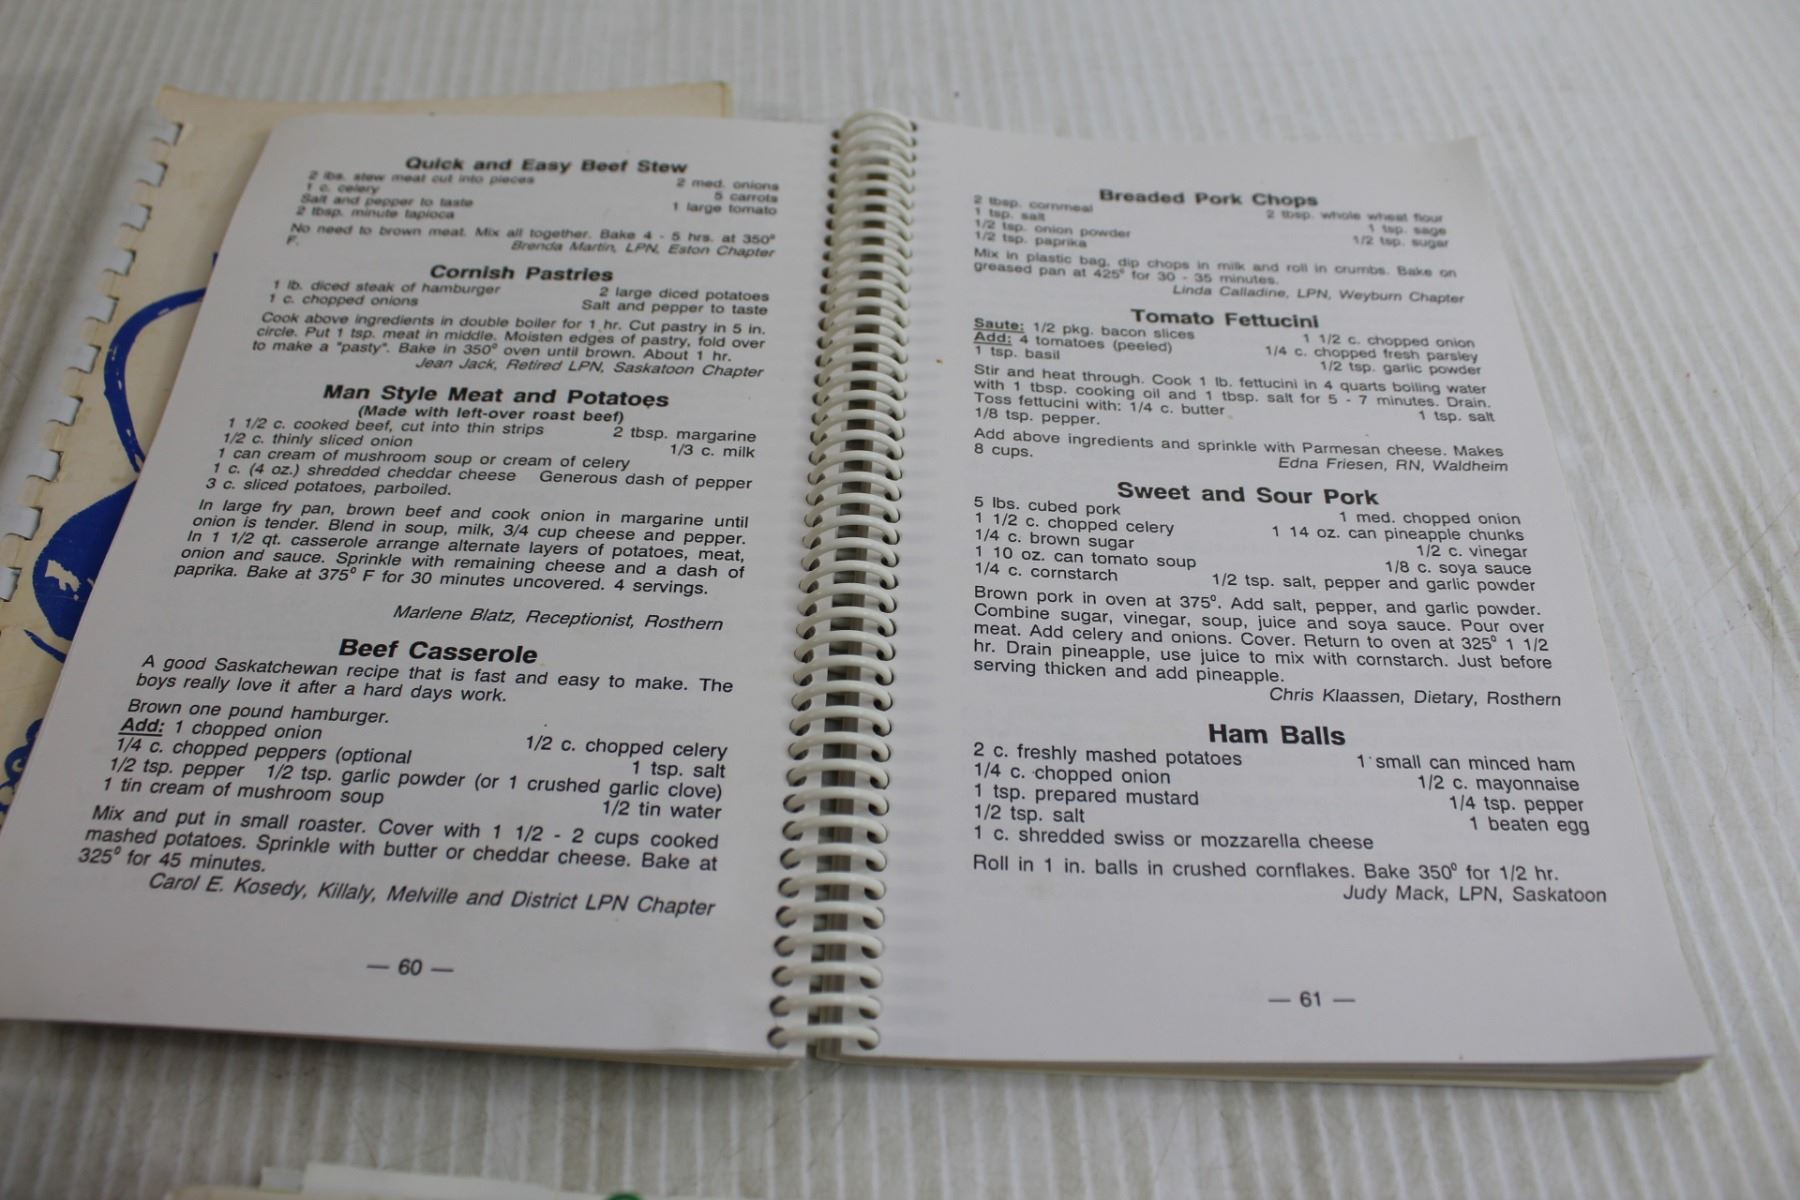 Quick and Easy Beef Stew
2 lbs. stew meat cut into pieces 2 med. onions
1 c. celery 5 carrots
Salt and pepper to taste 1 large tomato
2 tbsp. minute tapioca
No need to brown meat. Mix all together. Bake 4 - 5 hrs. at 350°
F.
Brenda Martin, LPN, Eston Chapter
Cornish Pastries
1 lb. diced steak of hamburger 2 large diced potatoes
1 c. chopped onions Salt and pepper to taste
Cook above ingredients in double boiler for 1 hr. Cut pastry in 5 in.
circle. Put 1 tsp. meat in middle. Moisten edges of pastry, fold over
to make a "pasty". Bake in 350° oven until brown. About 1 hr.
Jean Jack, Retired LPN, Saskatoon Chapter
Man Style Meat and Potatoes
(Made with left-over roast beef)
1 1/2 c. cooked beef, cut into thin strips 2 tbsp. margarine
1/2 c. thinly sliced onion 1/3 c. milk
1 can cream of mushroom soup or cream of celery
1 c. (4 oz.) shredded cheddar cheese Generous dash of pepper
3 c. sliced potatoes, parboiled.
In large fry pan, brown beef and cook onion in margarine until
onion is tender. Blend in soup, milk, 3/4 cup cheese and pepper.
In 1 1/2 qt. casserole arrange alternate layers of potatoes, meat,
onion and sauce. Sprinkle with remaining cheese and a dash of
paprika. Bake at 375° F for 30 minutes uncovered. 4 servings.
Marlene Blatz, Receptionist, Rosthern
Beef Casserole
A good Saskatchewan recipe that is fast and easy to make. The
boys really love it after a hard days work.
Brown one pound hamburger.
Add: 1 chopped onion 1/2 c. chopped celery
1/4 c. chopped peppers (optional 1 tsp. salt
1/2 tsp. pepper 1/2 tsp. garlic powder (or 1 crushed garlic clove)
1 tin cream of mushroom soup 1/2 tin water
Mix and put in small roaster. Cover with 1 1/2 - 2 cups cooked
mashed potatoes. Sprinkle with butter or cheddar cheese. Bake at
325° for 45 minutes.
Carol E. Kosedy, Killaly, Melville and District LPN Chapter
— 60 —
Breaded Pork Chops
2 tbsp. cornmeal 2 tbsp. whole wheat flour
1 tsp. salt 1 tsp. sage
1/2 tsp. onion powder 1/2 tsp. sugar
1/2 tsp. paprika
Mix in plastic bag, dip chops in milk and roll in crumbs. Bake on
greased pan at 425° for 30 - 35 minutes.
Linda Calladine, LPN, Weyburn Chapter
Tomato Fettucini
Saute: 1/2 pkg. bacon slices 1 1/2 c. chopped onion
Add: 4 tomatoes (peeled) 1/4 c. chopped fresh parsley
1 tsp. basil 1/2 tsp. garlic powder
Stir and heat through. Cook 1 lb. fettucini in 4 quarts boiling water
with 1 tbsp. cooking oil and 1 tbsp. salt for 5 - 7 minutes. Drain.
Toss fettucini with: 1/4 c. butter 1 tsp. salt
1/8 tsp. pepper.
Add above ingredients and sprinkle with Parmesan cheese. Makes
8 cups.
Edna Friesen, RN, Waldheim
Sweet and Sour Pork
5 lbs. cubed pork 1 med. chopped onion
1 1/2 c. chopped celery 1 14 oz. can pineapple chunks
1/4 c. brown sugar 1/2 c. vinegar
1 10 oz. can tomato soup 1/8 c. soya sauce
1/4 c. cornstarch 1/2 tsp. salt, pepper and garlic powder
Brown pork in oven at 375°. Add salt, pepper, and garlic powder.
Combine sugar, vinegar, soup, juice and soya sauce. Pour over
meat. Add celery and onions. Cover. Return to oven at 325° 1 1/2
hr. Drain pineapple, use juice to mix with cornstarch. Just before
serving thicken and add pineapple.
Chris Klaassen, Dietary, Rosthern
Ham Balls
2 c. freshly mashed potatoes 1 small can minced ham
1/4 c. chopped onion 1/2 c. mayonnaise
1 tsp. prepared mustard 1/4 tsp. pepper
1/2 tsp. salt 1 beaten egg
1 c. shredded swiss or mozzarella cheese
Roll in 1 in. balls in crushed cornflakes. Bake 350° for 1/2 hr.
Judy Mack, LPN, Saskatoon
— 61 —